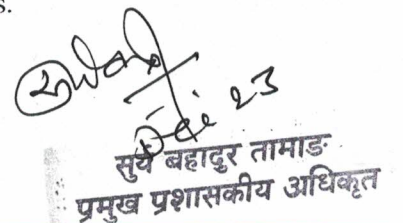 s.
23
सुवे बहादुर तामाङ
प्रमुख प्रशासकीय अधिकृत